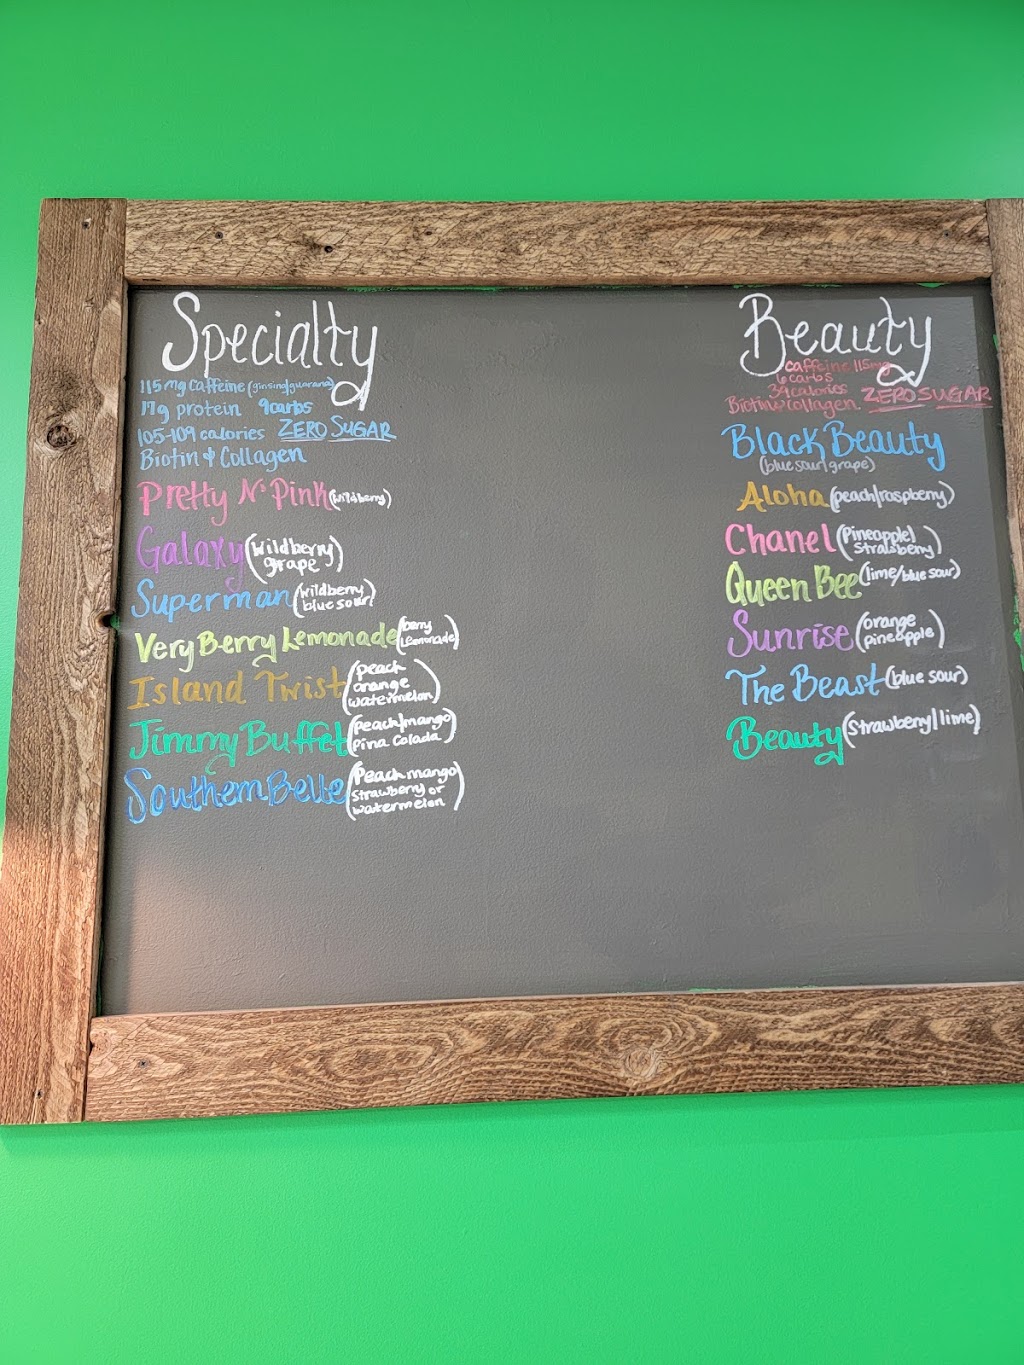 Specialty
115mg Caffeine (ginsing/guarana)
17g protein 9carbs
105-109 calories ZERO SUGAR
Biotin & Collagen
Pretty N' Pink (wildberry)
Galaxy (wildberry
grape)
Superman (wildberry
blue sour)
Very Berry Lemonade (berry
lemonade)
Island Twist (peach
orange
watermelon)
Jimmy Buffet (peach/mango
pina colada)
Southern Belle (Peach mango
strawberry or
watermelon)
Beauty
caffeine 115mg
6 carbs
34 calories ZERO SUGAR
Biotin & collagen
Black Beauty
(blue sour/grape)
Aloha (peach/raspberry)
Chanel (Pineapple/
Stralsberry)
Queen Bee (lime/blue sour)
Sunrise (orange
pineapple)
The Beast (blue sour)
Beauty (strawberry/lime)